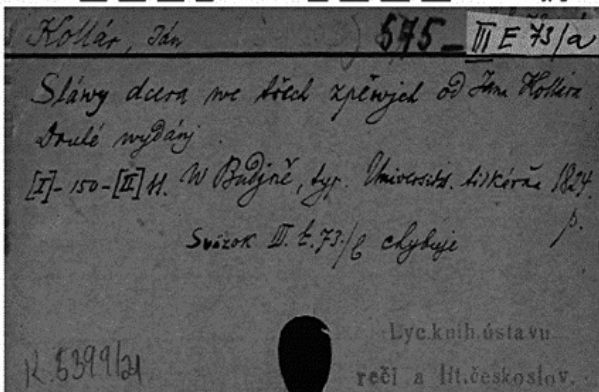 Kollár, Ján 575 – III E 73/a
Sláwy dcera we třech zpěwjch od Jana Kollára
Druhé wydánj
[I]-150-[II] st. W Budjně, typ. Universitt. tiskárna 1824.
Sväzok III. E. 73/b chybuje p.
K. 5399/21
Lyc. knih. ústavu
reči a lit. českoslov.